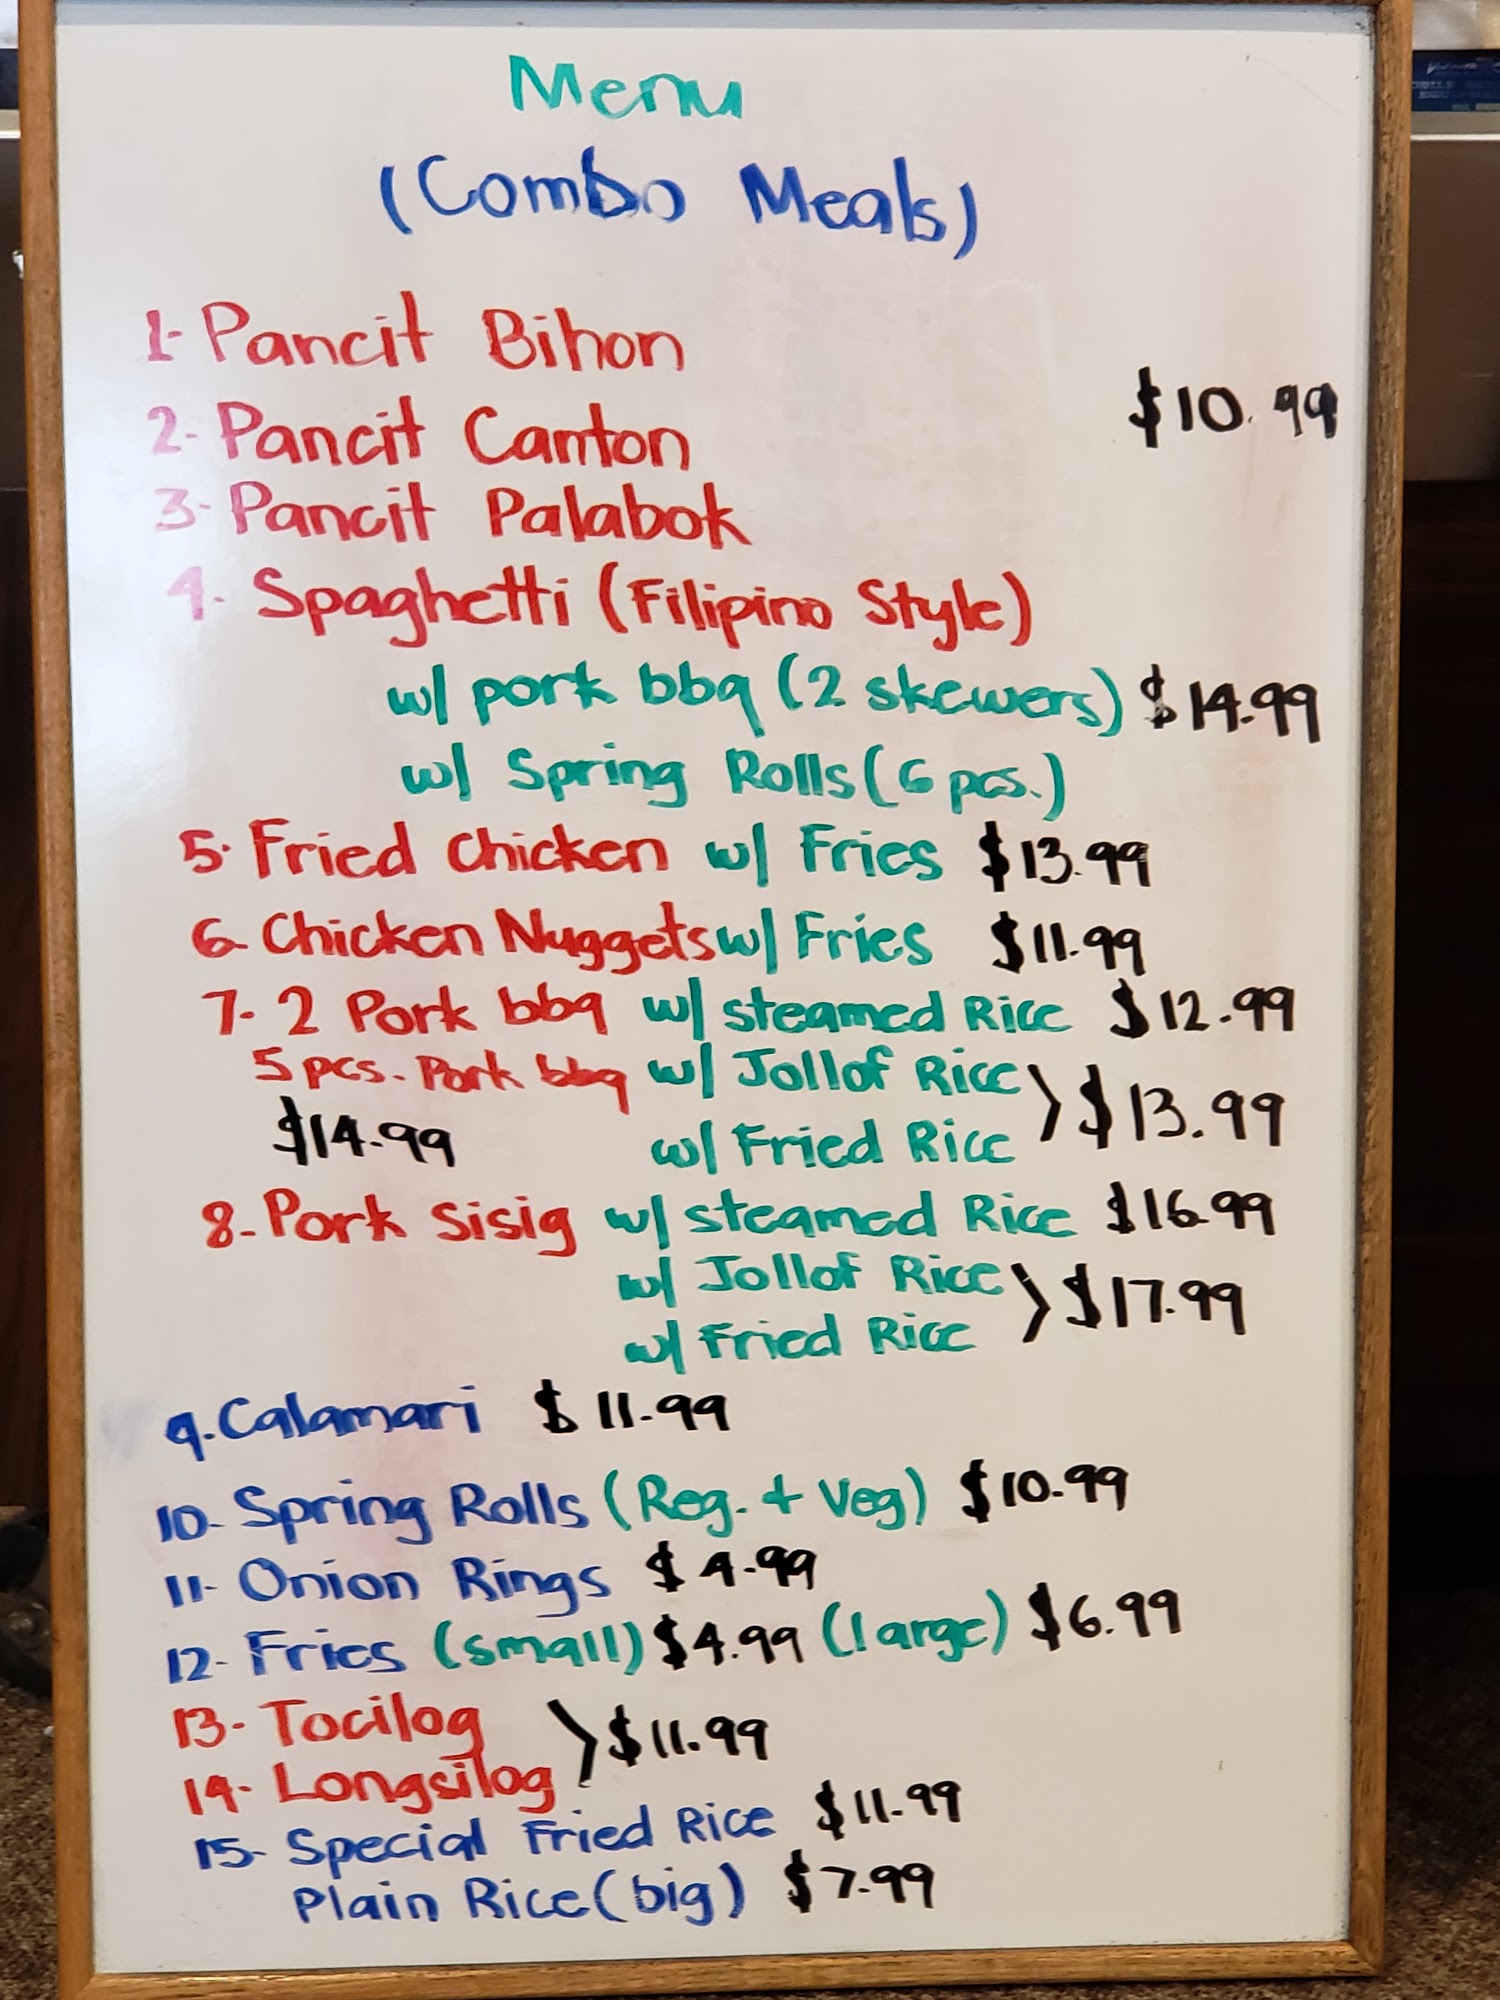 Menu
(Combo Meals)
1- Pancit Bihon
$10.99
2- Pancit Canton
3- Pancit Palabok
4- Spaghetti (Filipino Style)
w/ pork bbq (2 skewers) $14.99
w/ Spring Rolls (6 pcs.)
5- Fried Chicken w/ Fries $13.99
6- Chicken Nuggets w/ Fries $11.99
7- 2 Pork bbq w/ steamed Rice $12.99
5 pcs. Pork bbq w/ Jollof Rice > $13.99
$14.99 w/ Fried Rice
8- Pork Sisig w/ steamed Rice $16.99
w/ Jollof Rice > $17.99
w/ Fried Rice
9. Calamari $11.99
10- Spring Rolls (Reg. + Veg) $10.99
11- Onion Rings $4.99
12- Fries (small) $4.99 (large) $6.99
13- Tocilog > $11.99
14- Longsilog
15- Special Fried Rice $11.99
Plain Rice (big) $7.99